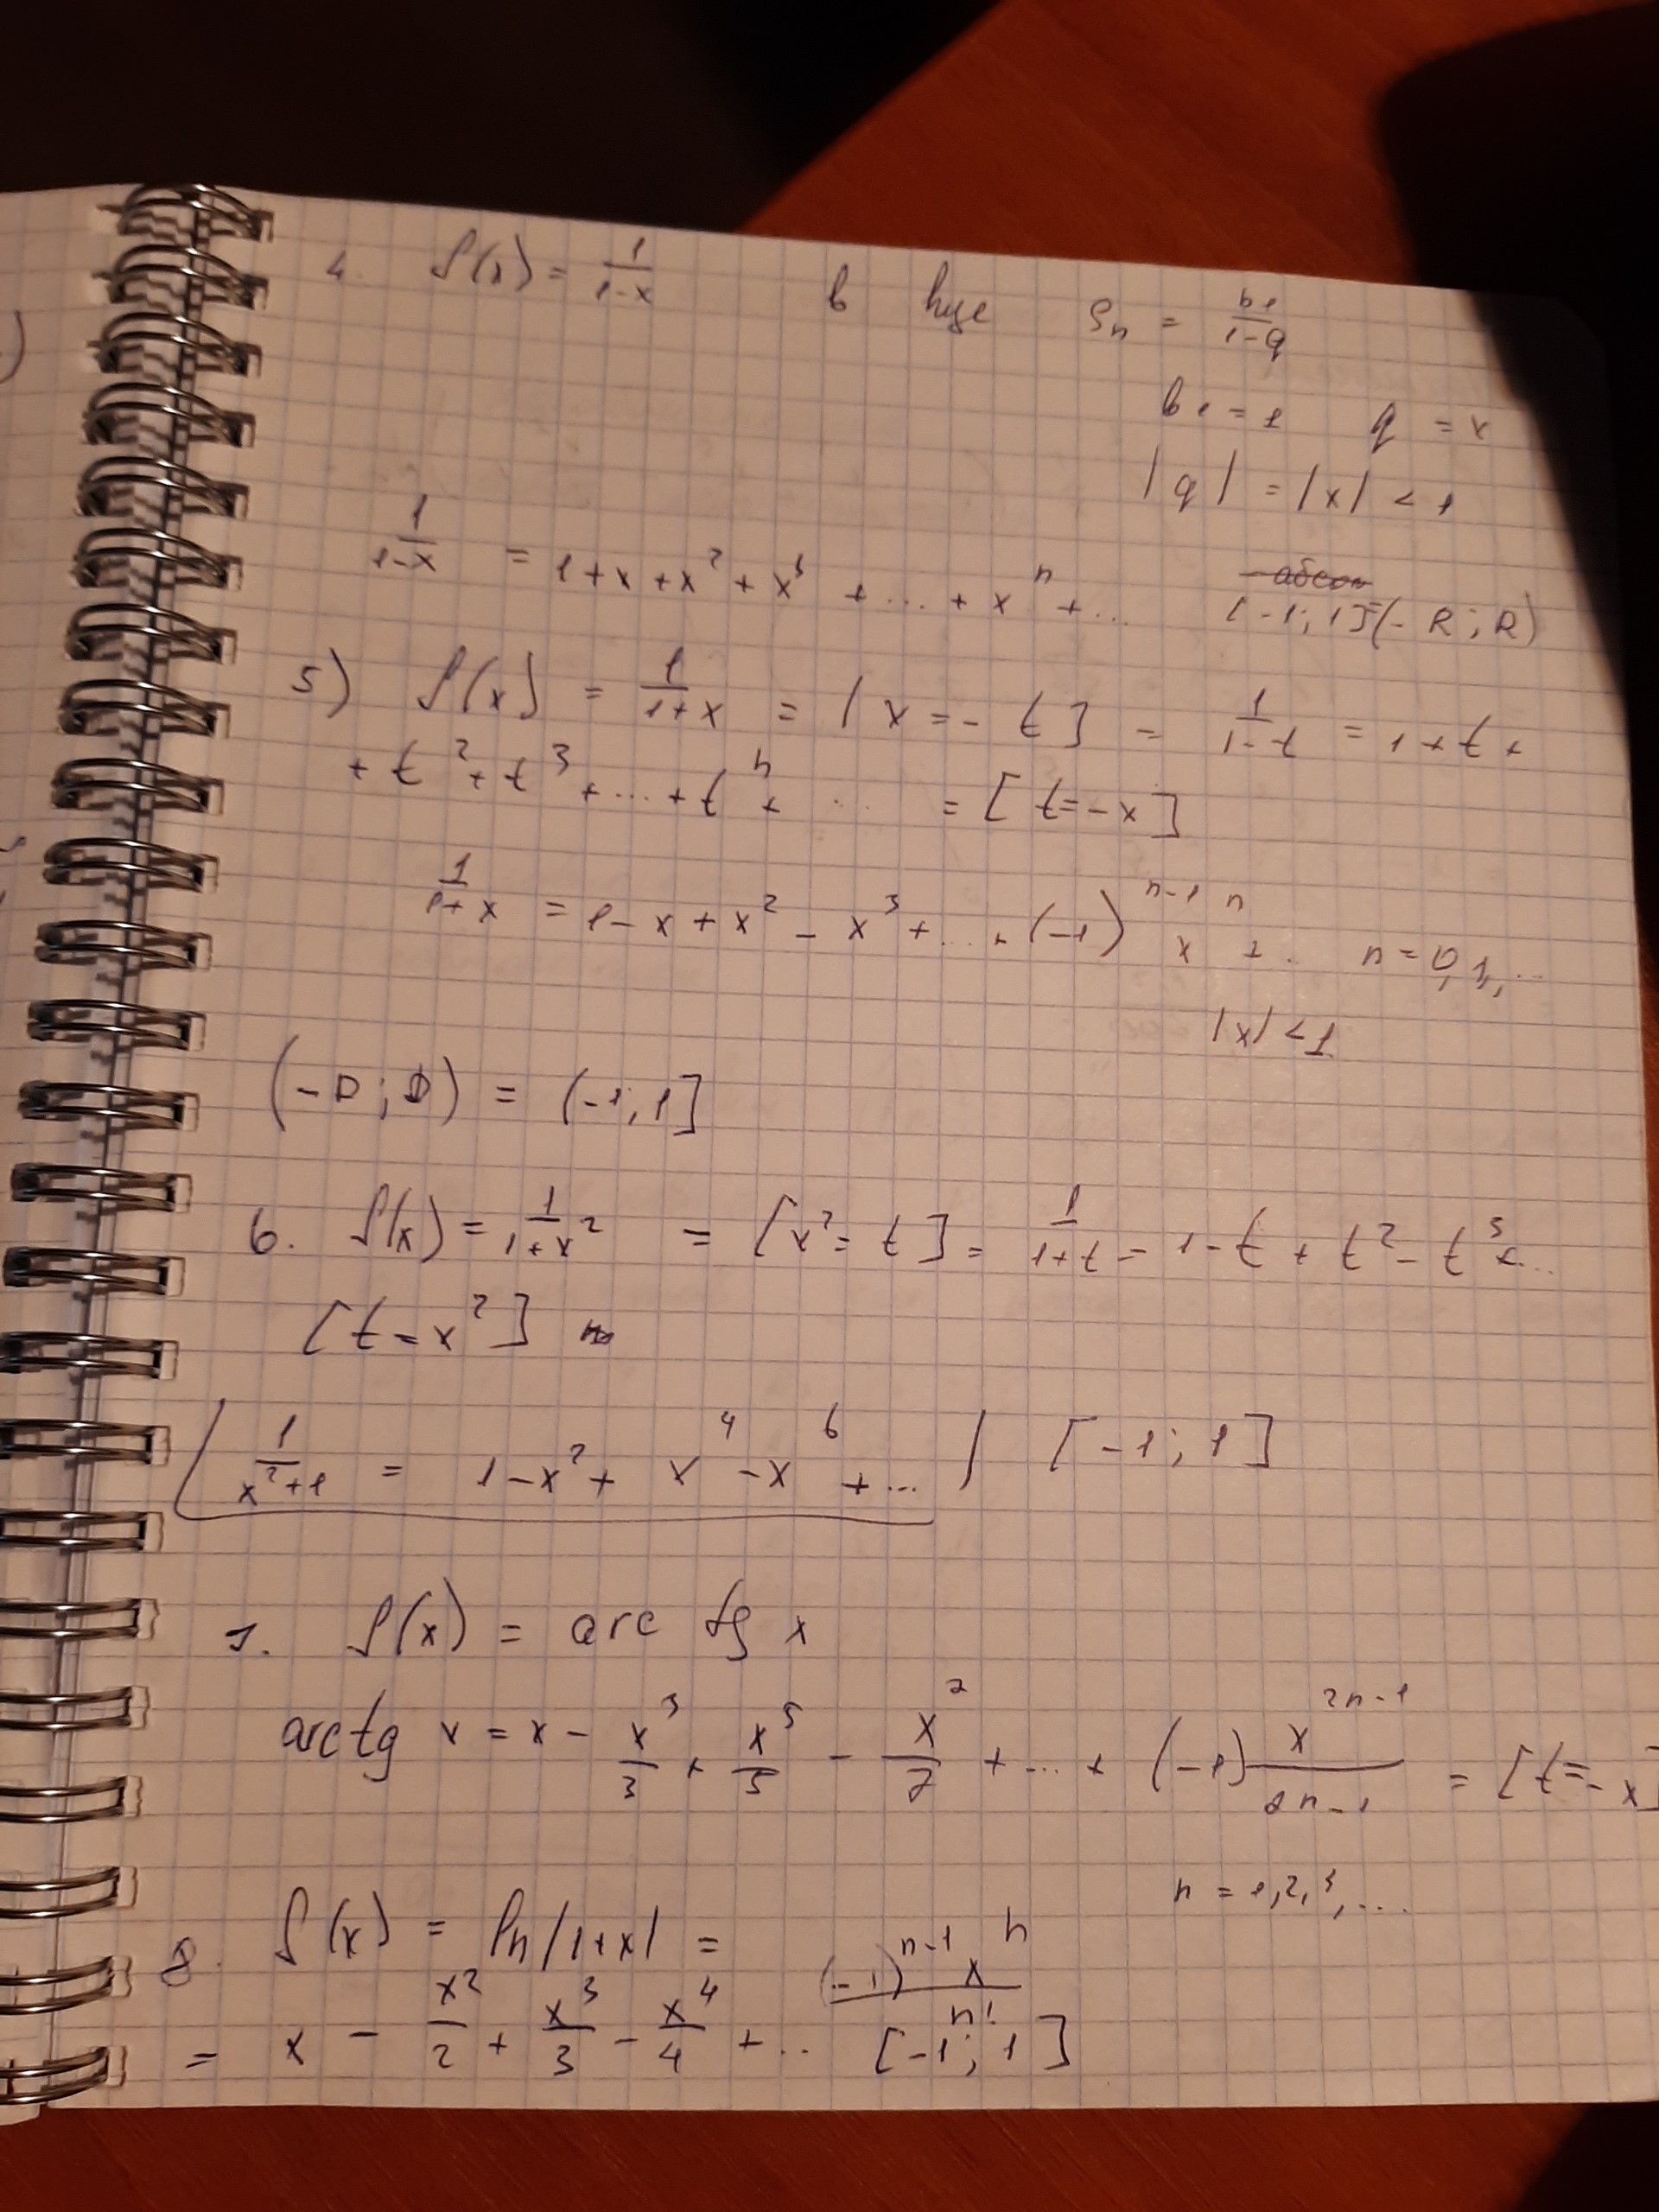 4. f(x) = 1/(1-x) в виде Sn = b1/(1-q)
b1 = 1 q = x
|q| = |x| < 1
1/(1-x) = 1 + x + x² + x³ + ... + xⁿ + ... [-1; 1] = (-R; R)
5) f(x) = 1/(1+x) = [x = -t] = 1/(1-t) = 1 + t +
+ t² + t³ + ... + tⁿ + ... = [t = -x]
1/(1+x) = 1 - x + x² - x³ + ... + (-1)ⁿ⁻¹ xⁿ + .. n = 0, 1, ...
|x| < 1
(-D; D) = (-1; 1]
6. f(x) = 1/(1+x²) = [x² = t] = 1/(1+t) = 1 - t + t² - t³ + ...
[t = x²]
1/(x²+1) = 1 - x² + x⁴ - x⁶ + ... | [-1; 1]
7. f(x) = arc tg x
arctg x = x - x³/3 + x⁵/5 - x⁷/7 + ... + (-1) x²ⁿ⁻¹/(2n-1) = [t = -x]
n = 1, 2, 3, ...
8. f(x) = ln|1+x| =
= x - x²/2 + x³/3 - x⁴/4 + ... (-1)ⁿ⁻¹ xⁿ/n! [-1; 1]